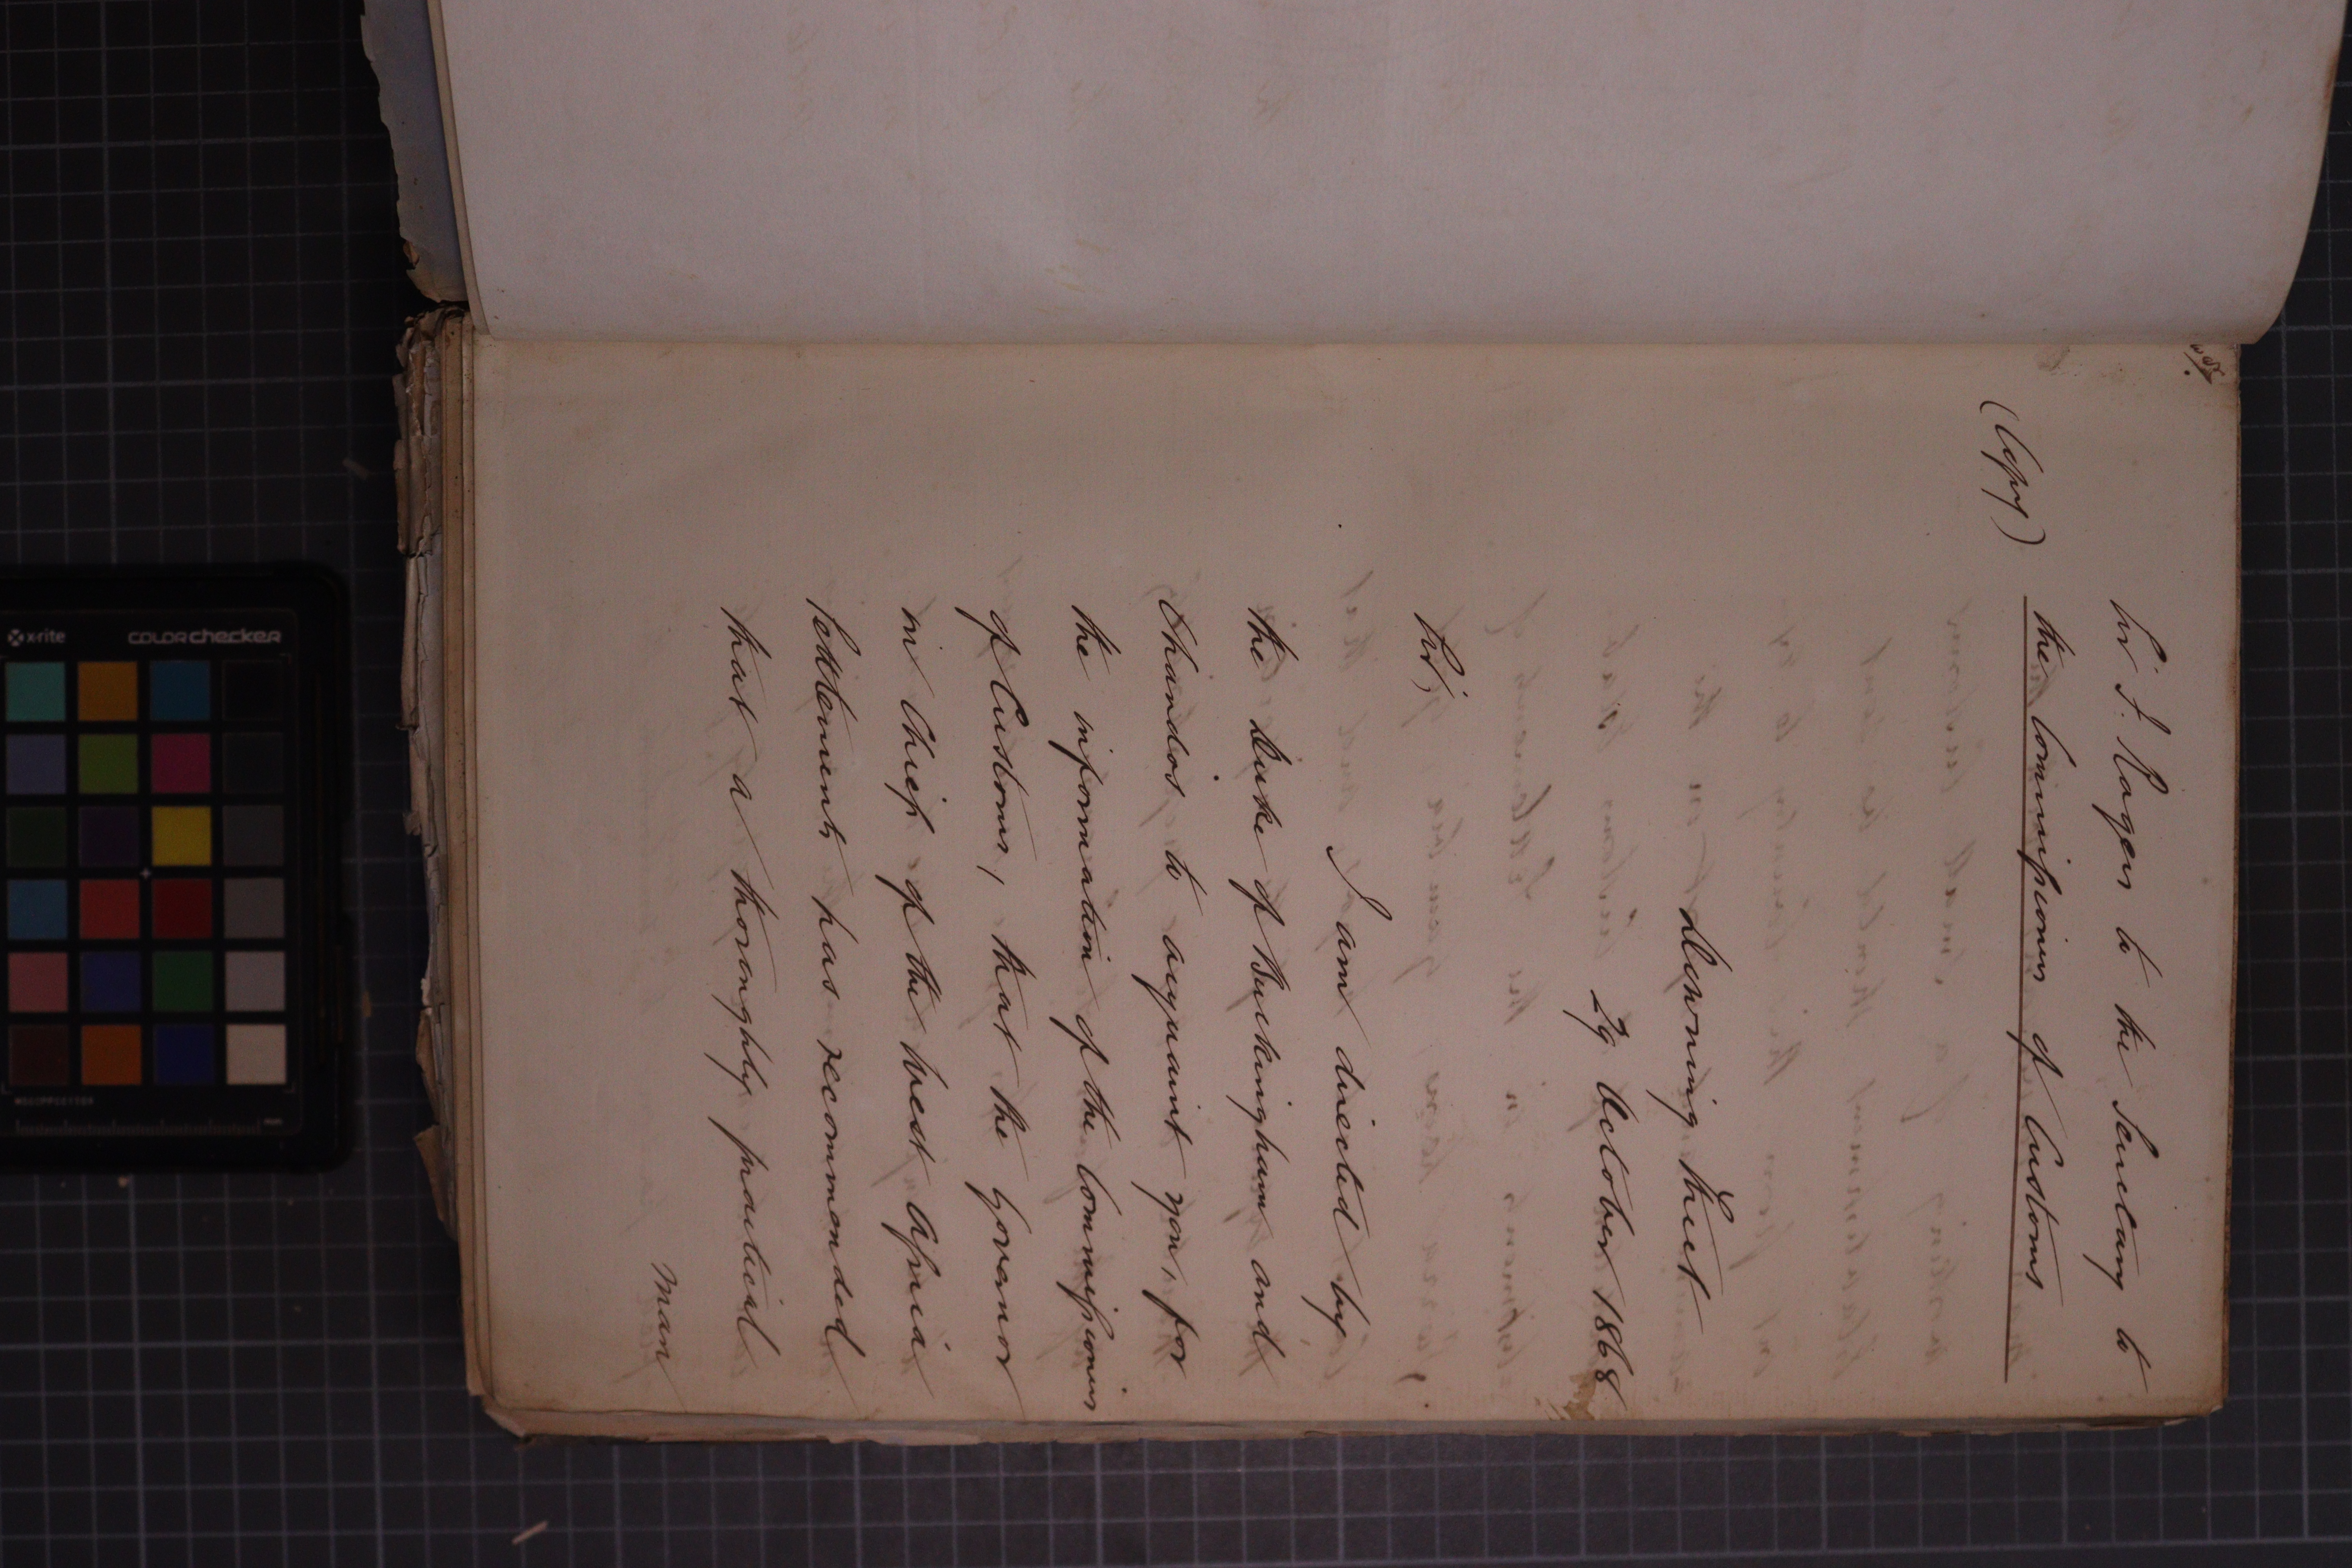 Sir F. Rogers to the Secretary to
the Commissioners of Customs
(Copy)
Downing Street
29 October 1868
Sir,
I am directed by
the Duke of Buckingham and
Chandos to acquaint you, for
the information of the Commissioners
of Customs, that the Governor
in Chief of the West Africa
Settlements has recommended
that a thoroughly practical
man
x-rite
colorchecker